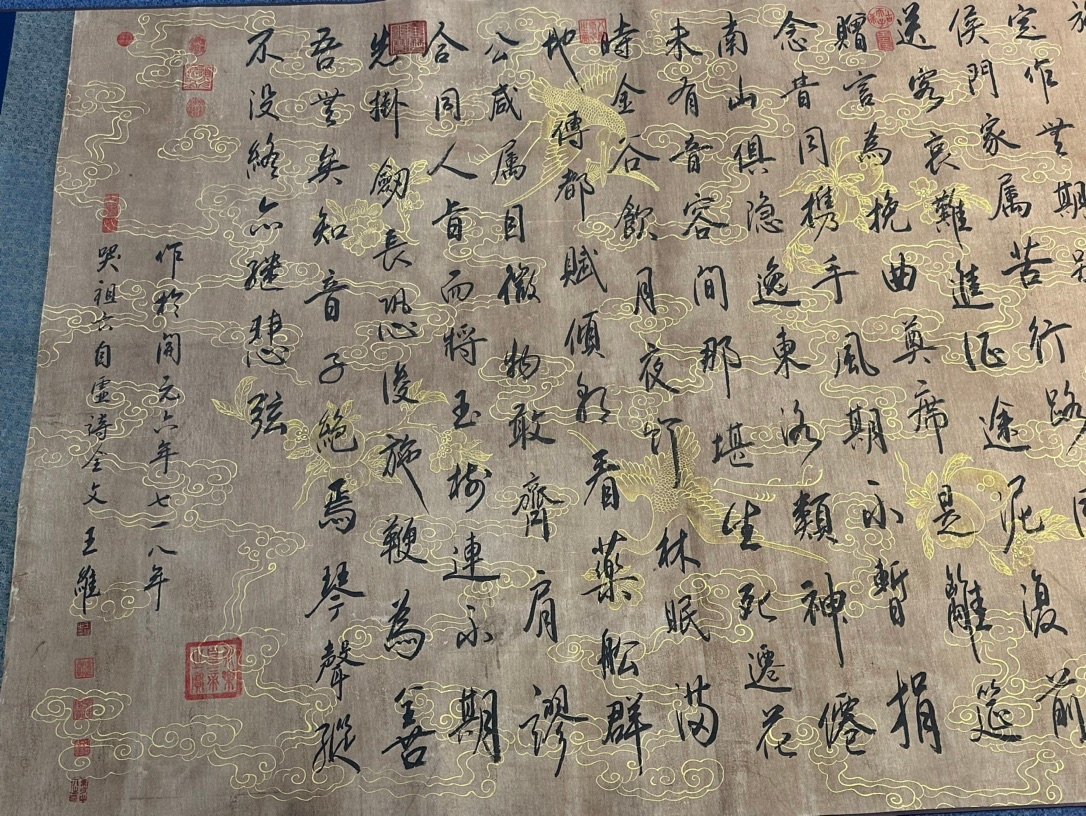 定作無期别
侯門家属苦行路
送客哀難進征途泥復前
贈言為挽曲奠席是離筵
念昔同携手風期不暫捐
南山俱隐逸東洛類神僊
未有音容間那堪生死遷花
時金谷飲月夜竹林眠满
地傳都賦傾朝看藥船群
公咸属目微物敢齊肩謬
合同人旨而将玉樹連不期
先掛劔長恐後施鞭為善
吾無矣知音子絶焉琴聲縱
不没終亦继悲弦
作於開元六年七一八年
哭祖六自虚詩全文 王維